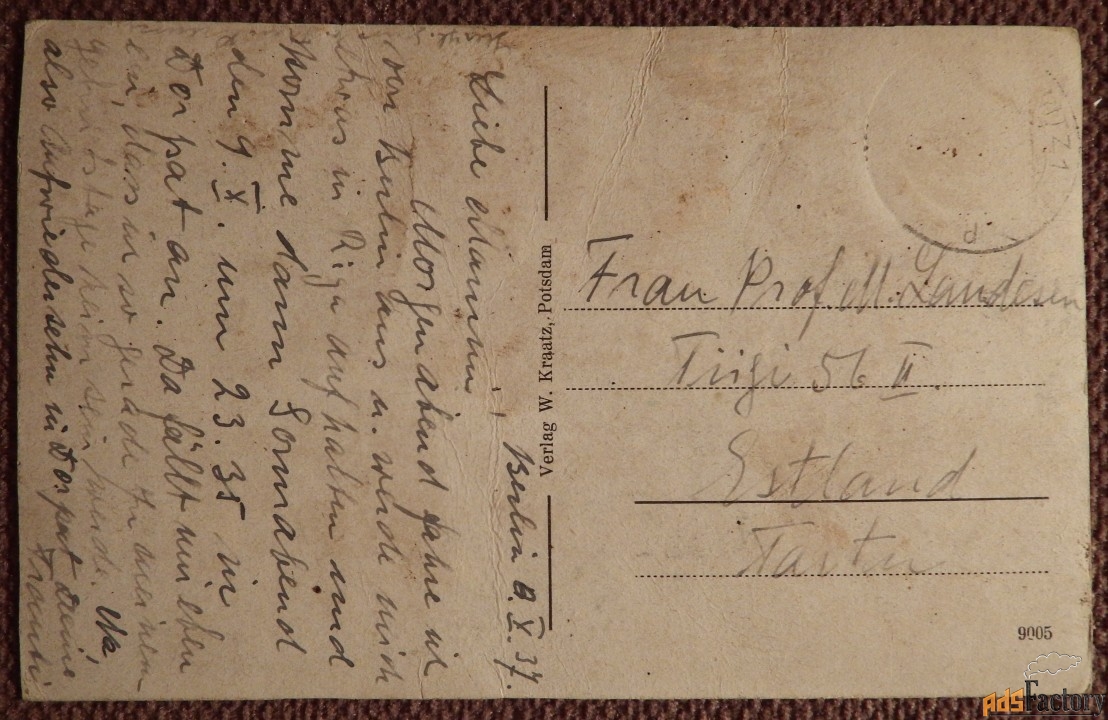 Berlin 8. X. 37.
Liebe Mammi!
Morgen abend fahre ich
von Berlin aus u. werde mich
etwas in Riga aufhalten und
komme dann Sonnabend
den 9. X. um 23.35 in
Dorpat an. Da fällt mir eben
ein, dass ich so gerade zu meinem
Geburtstage heim sein werde. Na
also Aufwiedersehn in Dorpat Deine
Verlag W. Kraatz, Potsdam
Frau Prof. M. Landesen
Tiigi 56 II.
Estland
Tartu
9005
AdsFactory